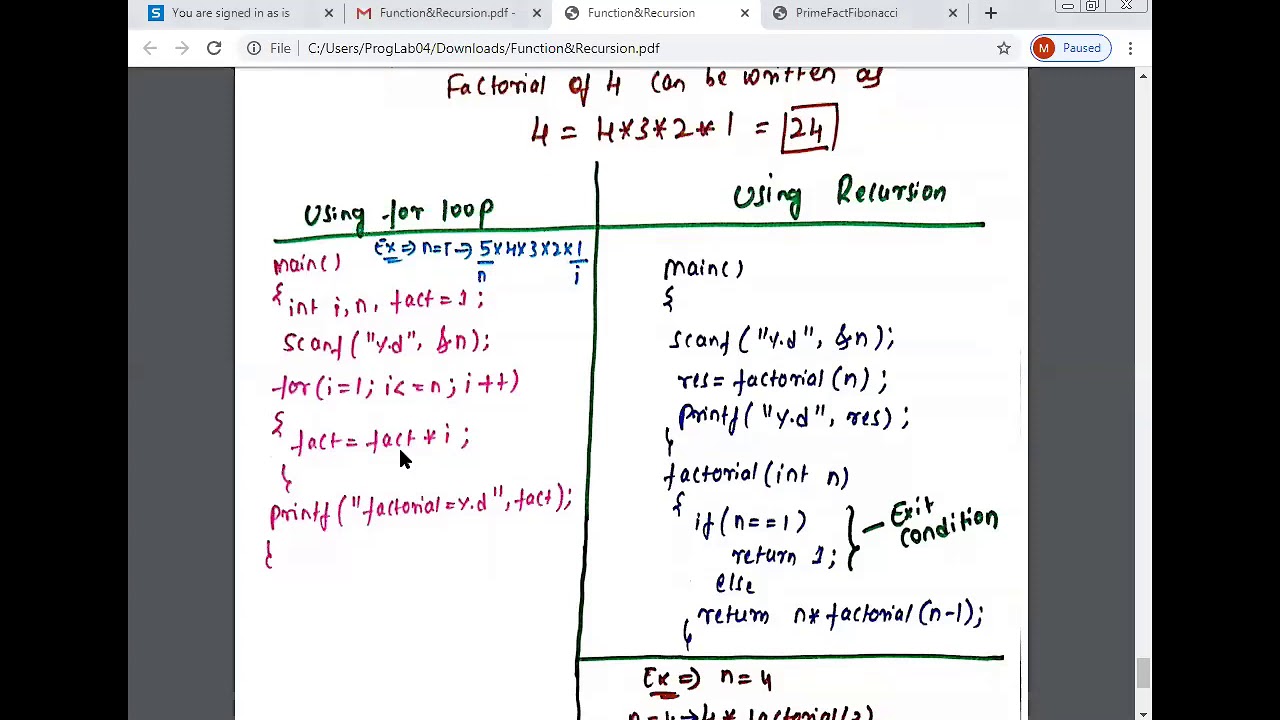 You are signed in as is
Function&Recursion.pdf -
Function&Recursion
PrimeFactFibonacci
File
C:/Users/ProgLab04/Downloads/Function&Recursion.pdf
M Paused
Factorial of 4 can be written as
4 = 4*3*2*1 = 24
Using for loop
Ex => n=5 → 5*4*3*2*1
n i
main()
{ int i,n, fact=1;
scanf("%d", &n);
for(i=1; i<=n; i++)
{
fact = fact * i;
}
printf("factorial=%d", fact);
}
Using Recursion
main()
{
scanf("%d", &n);
res= factorial(n);
printf("%d", res);
}
factorial(int n)
{
if(n==1)
return 1;
Exit
condition
else
return n* factorial(n-1);
}
Ex => n=4
n=4→4* factorial(3)